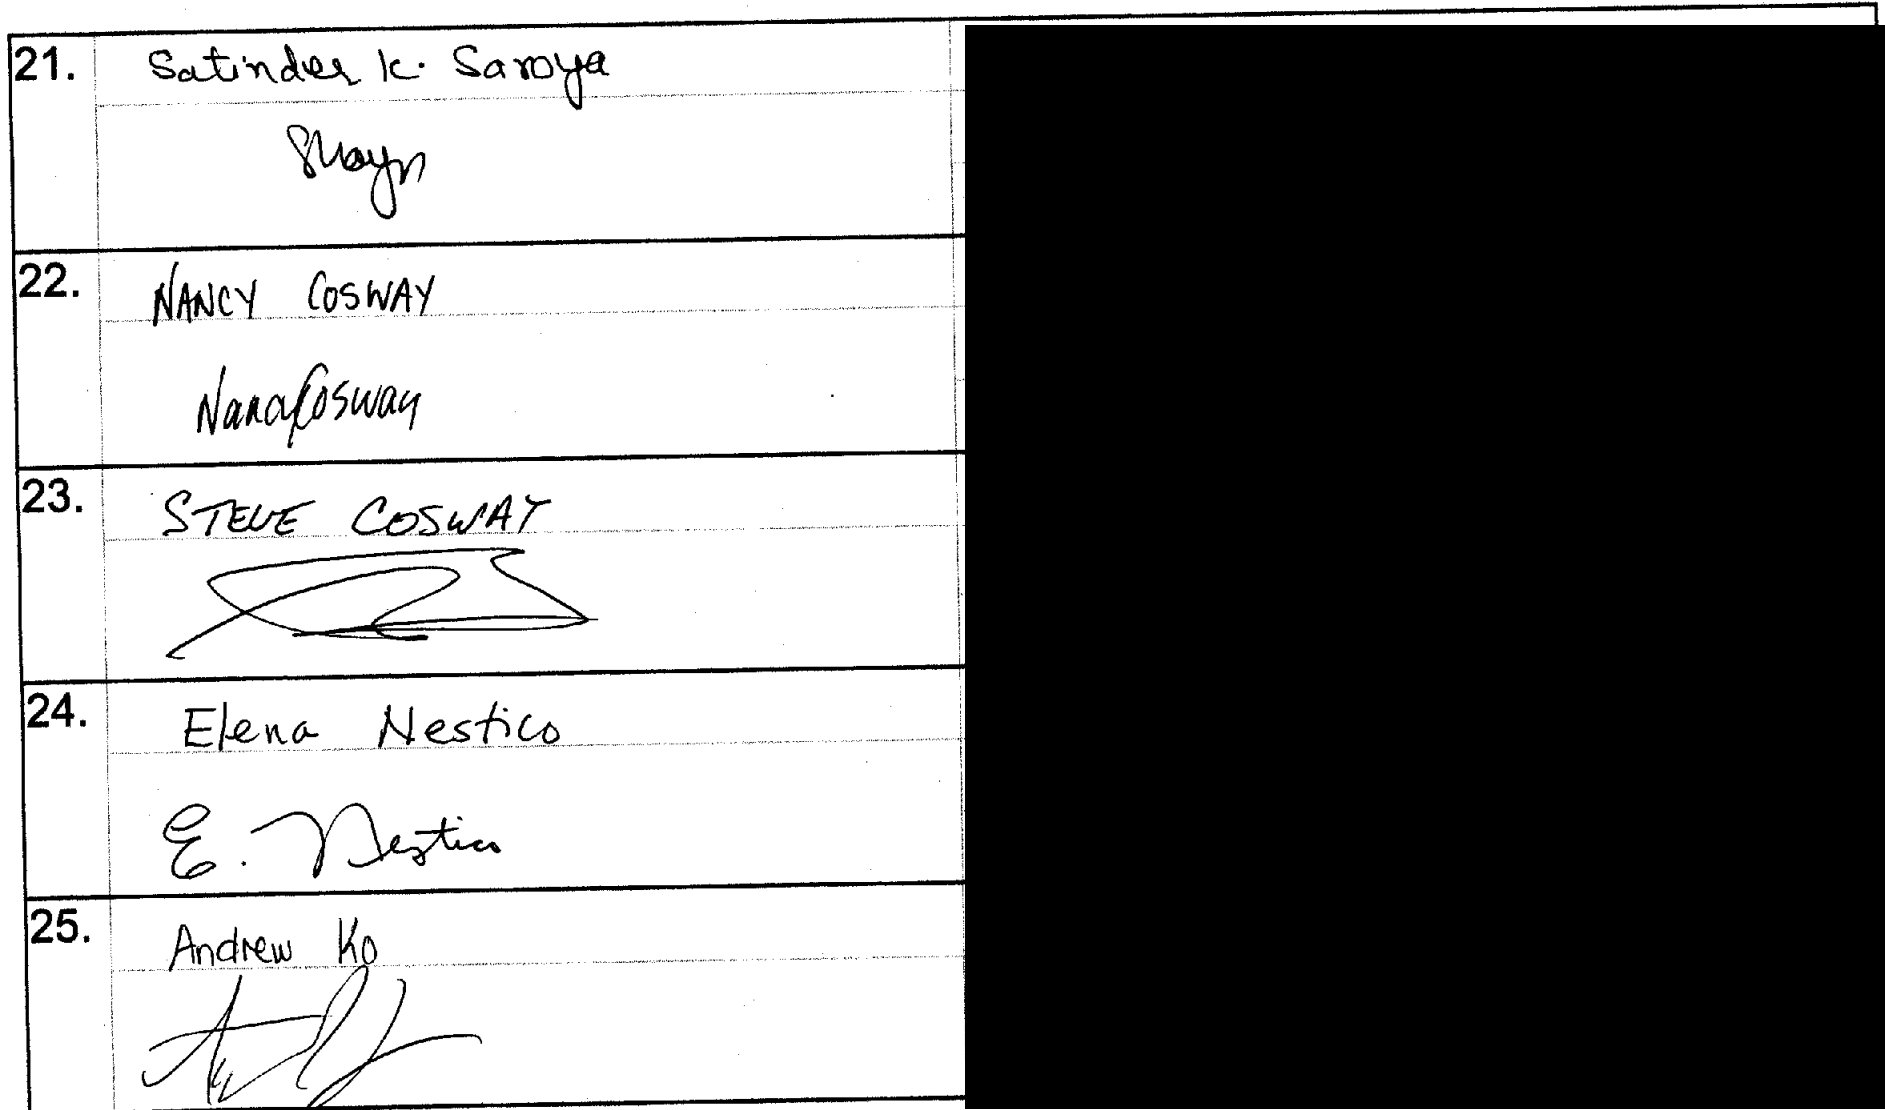 21. Satinder K. Saroya
22. NANCY COSWAY
Nancy Cosway
23. STEVE COSWAY
24. Elena Nestico
E. Nestico
25. Andrew Ko